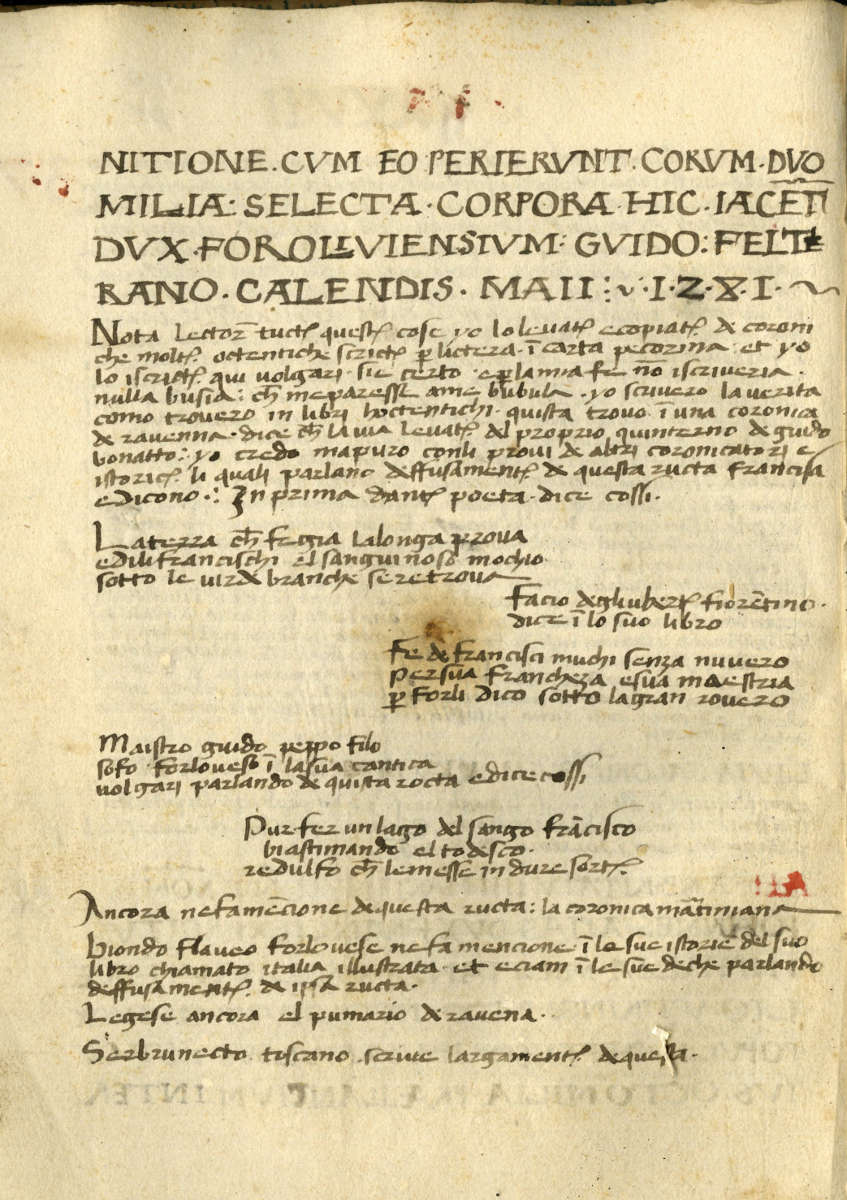 NITIONE · CVM EO PERIERVNT · CORVM · DVO
MILIA : SELECTA · CORPORA · HIC · IACET
DVX · FOROLIVIENSIVM : GVIDO : FELT
RANO · CALENDIS · MAII : ~ · I · Z · X · I · ~
Nota Lector tuct. quest. cose yo lo levat. e copiat. de coroni
che molt. octentiche scrict. p lictera · ī carta pecorina · et yo
lo iscrict. qui volgari · sie certo · e p la mia fe no iscriveria ·
nulla busia : ch me paresse ame bubula · yo scrivero la verita
como trovero in libri hoctentichi · quista trovo ī una coronica
de ravenna · dice ch la via levat. del proprio quinterno de guido
bonatto : yo credo ma puro con li provi de altri coronicatori e
istoric. li quali parlano deffusament. de questa ructa francisa
e dicono : In prima dant. poeta · dice cossi ·
La terra ch fe gia la longa prova
e di li francischi el sanguinoso mochio ·
sotto le virde branche se retrova
Facio degli ubert. fiorētino ·
dice ī lo suo libro
Fe de francisci muchi senza nuvero
per sua francheza e sua maestria
p Forli dico sotto la gran rovero
Maistro guido peppo filo
sofo forlovese ī la sua cantica
volgari parlando de quista rocta e dice cossi
Pur fer un lago del sango frācisco
biastimando el todesco ·
redulfo ch le messe in dure sort.
Ancora ne fa mēcione de questa ructa : la coronica mārtiniana
biondo flaveo forlovese ne fa mencione ī le sue istorie del suo
libro chiamato italia illustrata · et eciam ī le sue deche parlando
deffusament. de ipsa ructa ·
Legese ancora el pumario de ravena ·
Ser brunecto toscano scrive largament. de questa ·